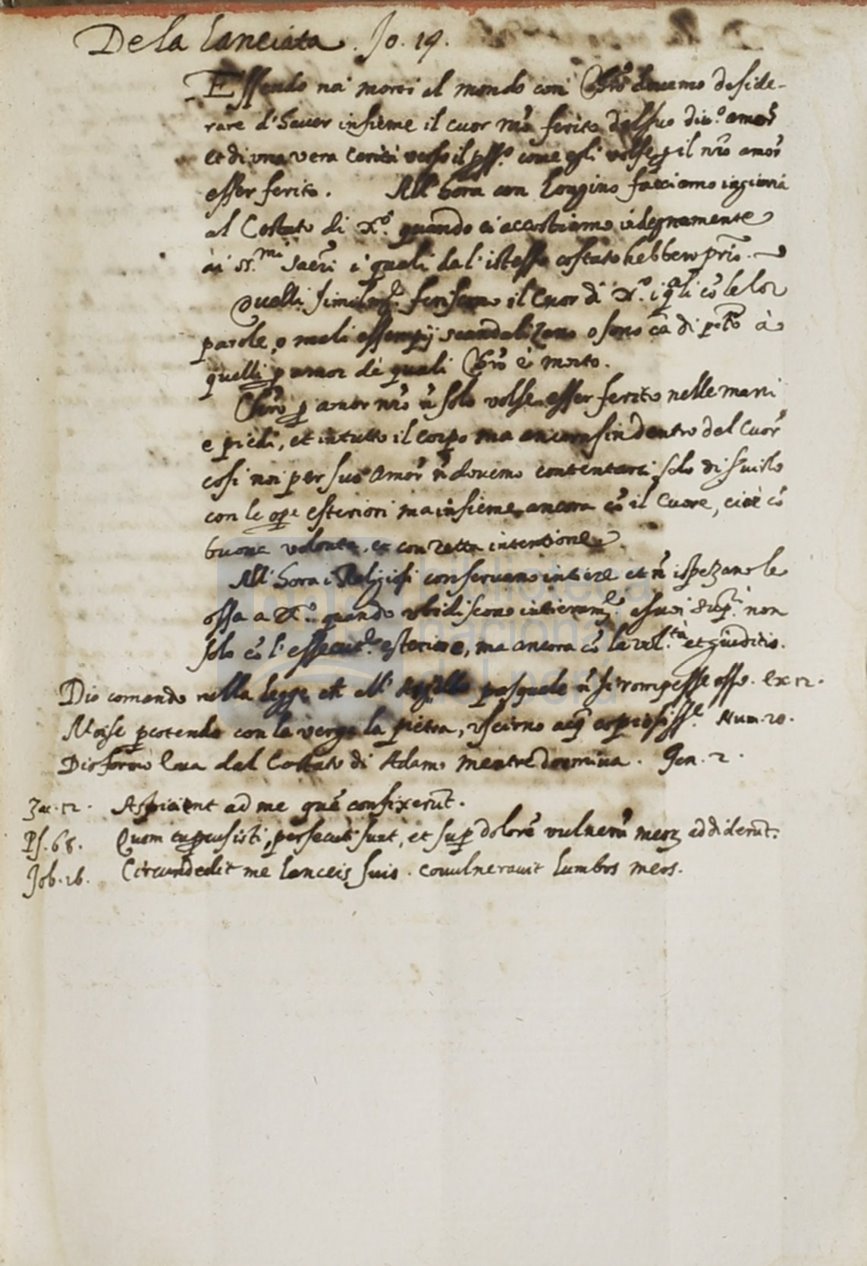 De la lanciata. Jo. 19.
Essendo noi morti al mondo con Chrō douemo deside-
rare d'hauer insieme il cuor nr̄o ferito del suo diu.º amor̄
et di una vera carità verso il pss.º come egli volse il nr̄o amor̄
esser ferito. All'hora con Longino facciamo ingiuria
al Costato di Xº. quando ci accostiamo īdegnamente
ai SS.mi Sacrī i quali dal'istesso costato hebbero prīn.
Quelli similm.te feriscono il Cuor di Xº. i q̄li cō le lor
parole, o mali essempij scandalizano o sono cā di pctō à
quelli p amor de quali Chrō è morto.
Chrō p amor nr̄o ñ solo volse esser ferito nelle mani
e piedi, et in tutto il corpo ma ancora fin dentro del Cuor̄
cosi noi per suo Amor̄ ñ douemo contentarci solo di seruirlo
con le ope esteriori ma insieme ancora cō il Cuore, cioè cō
buona volontà, et con retta intentione.
All'hora i Religiosi conseruano intiere et ñ ispezano le
ossa a Xº. quando obediscono intieram.e a suoi Sup.ri non
solo cō l'essecut.e esteriore, ma ancora cō la vol.tà et giuditio.
Dio comandò nella legge che all' Agnello pasquale ñ si rompesse osso. Ex 12.
Moise pcotendo con la verga la pietra, uscirno acq̄ copiosiss.e Num. 20.
Dio formò Eua dal Costato di Adamo mentre dormiua. Gen. 2.
Zac. 12. Aspicient ad me quē confixerūt.
Ps. 68. Quem tu pcussisti, persecuti sunt, et sup dolorē vulnerū meoꝝ addiderūt.
Job. 16. Circundedit me lanceis suis. conuulnerauit lumbos meos.